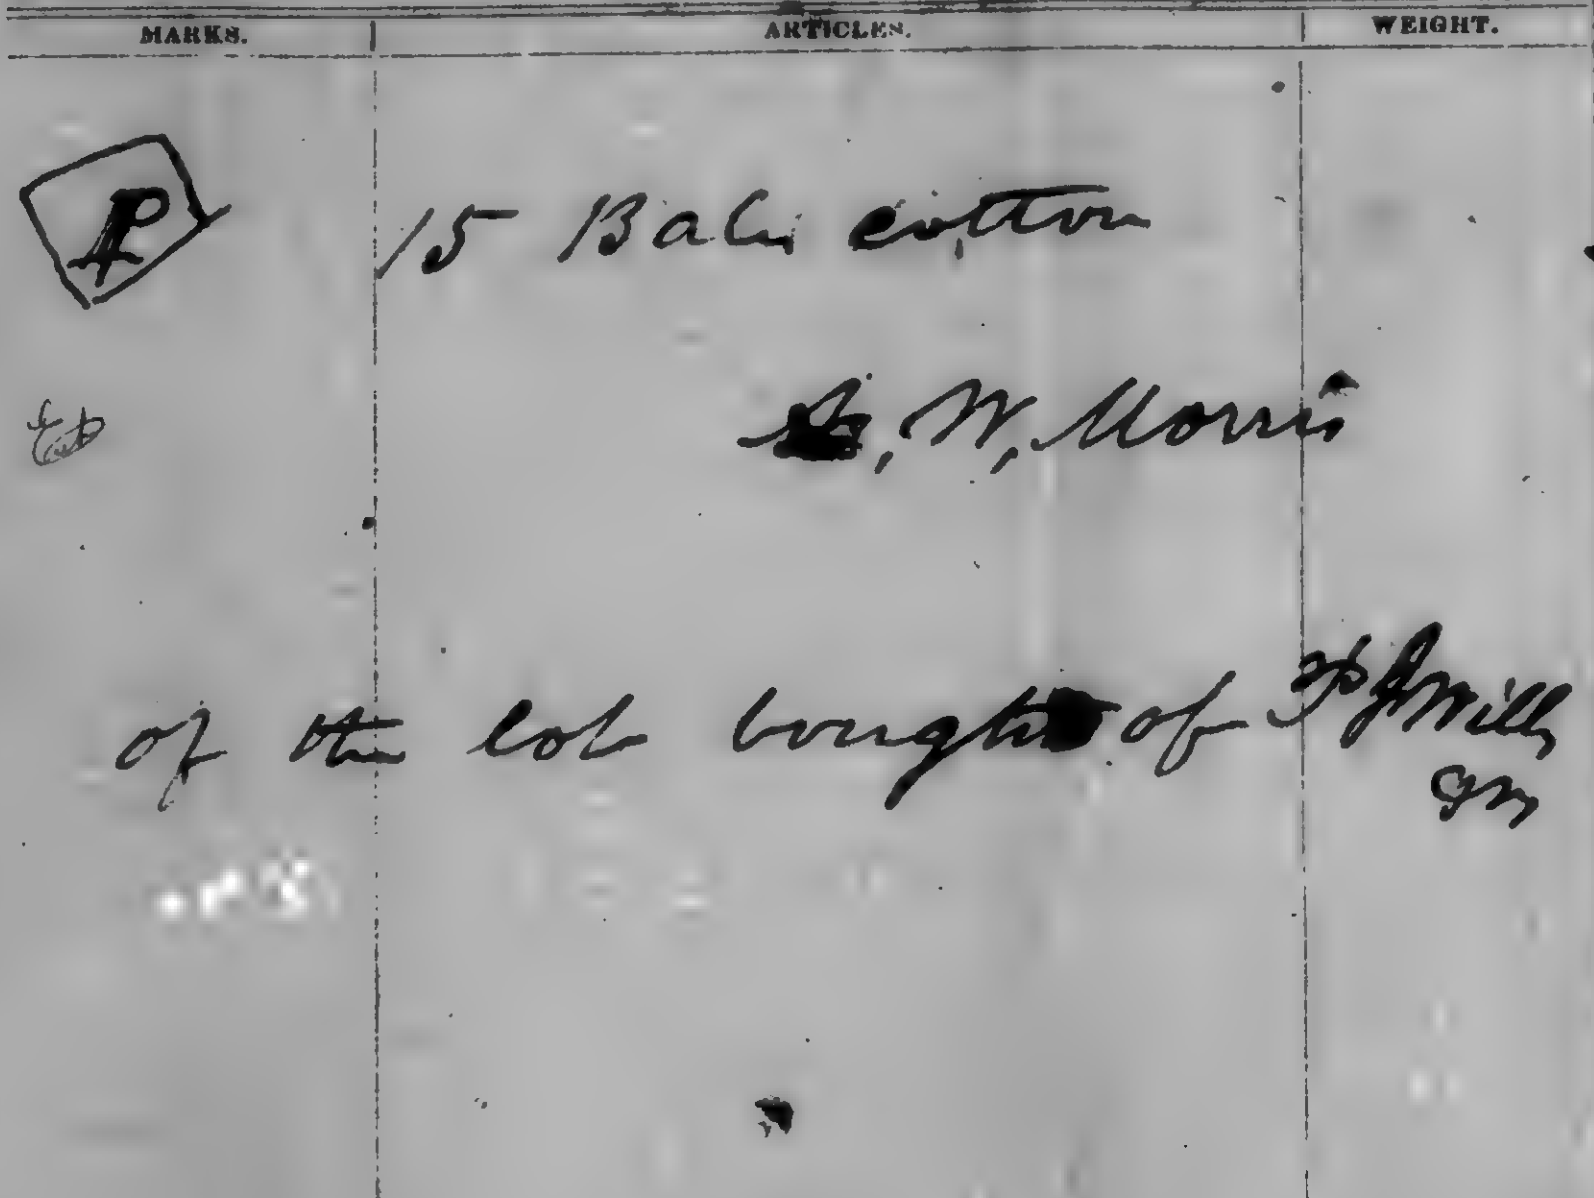 MARKS. ARTICLES. WEIGHT.
P 15 Bales cotton
W. Morris
of the lot bought of Mills